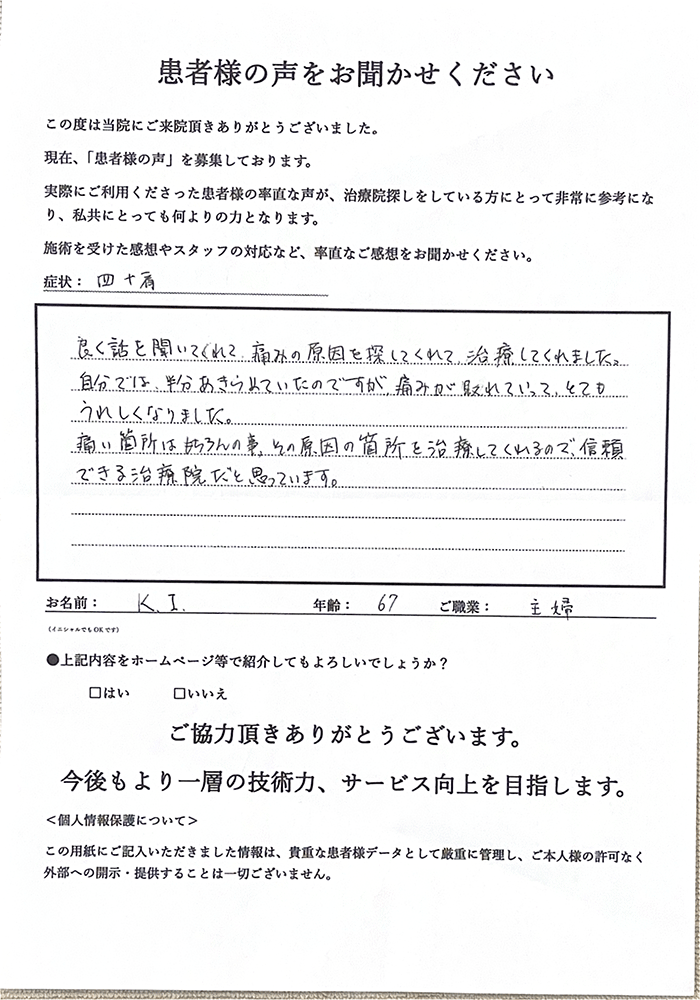 患者様の声をお聞かせください
この度は当院にご来院頂きありがとうございました。
現在、「患者様の声」を募集しております。
実際にご利用くださった患者様の率直な声が、治療院探しをしている方にとって非常に参考にな
り、私共にとっても何よりの力となります。
施術を受けた感想やスタッフの対応など、率直なご感想をお聞かせください。
症状：四十肩
良く話を聞いてくれて、痛みの原因を探してくれて、治療してくれました。
自分では、半分あきらめていたのですが、痛みが取れていって、とても
うれしくなりました。
痛い箇所はもちろんの事、その原因の箇所を治療してくれるので、信頼
できる治療院だと思っています。
お名前： K.I. 年齢： 67 ご職業： 主婦
（イニシャルでもOKです）
●上記内容をホームページ等で紹介してもよろしいでしょうか？
□はい □いいえ
ご協力頂きありがとうございます。
今後もより一層の技術力、サービス向上を目指します。
＜個人情報保護について＞
この用紙にご記入いただきました情報は、貴重な患者様データとして厳重に管理し、ご本人様の許可なく
外部への開示・提供することは一切ございません。